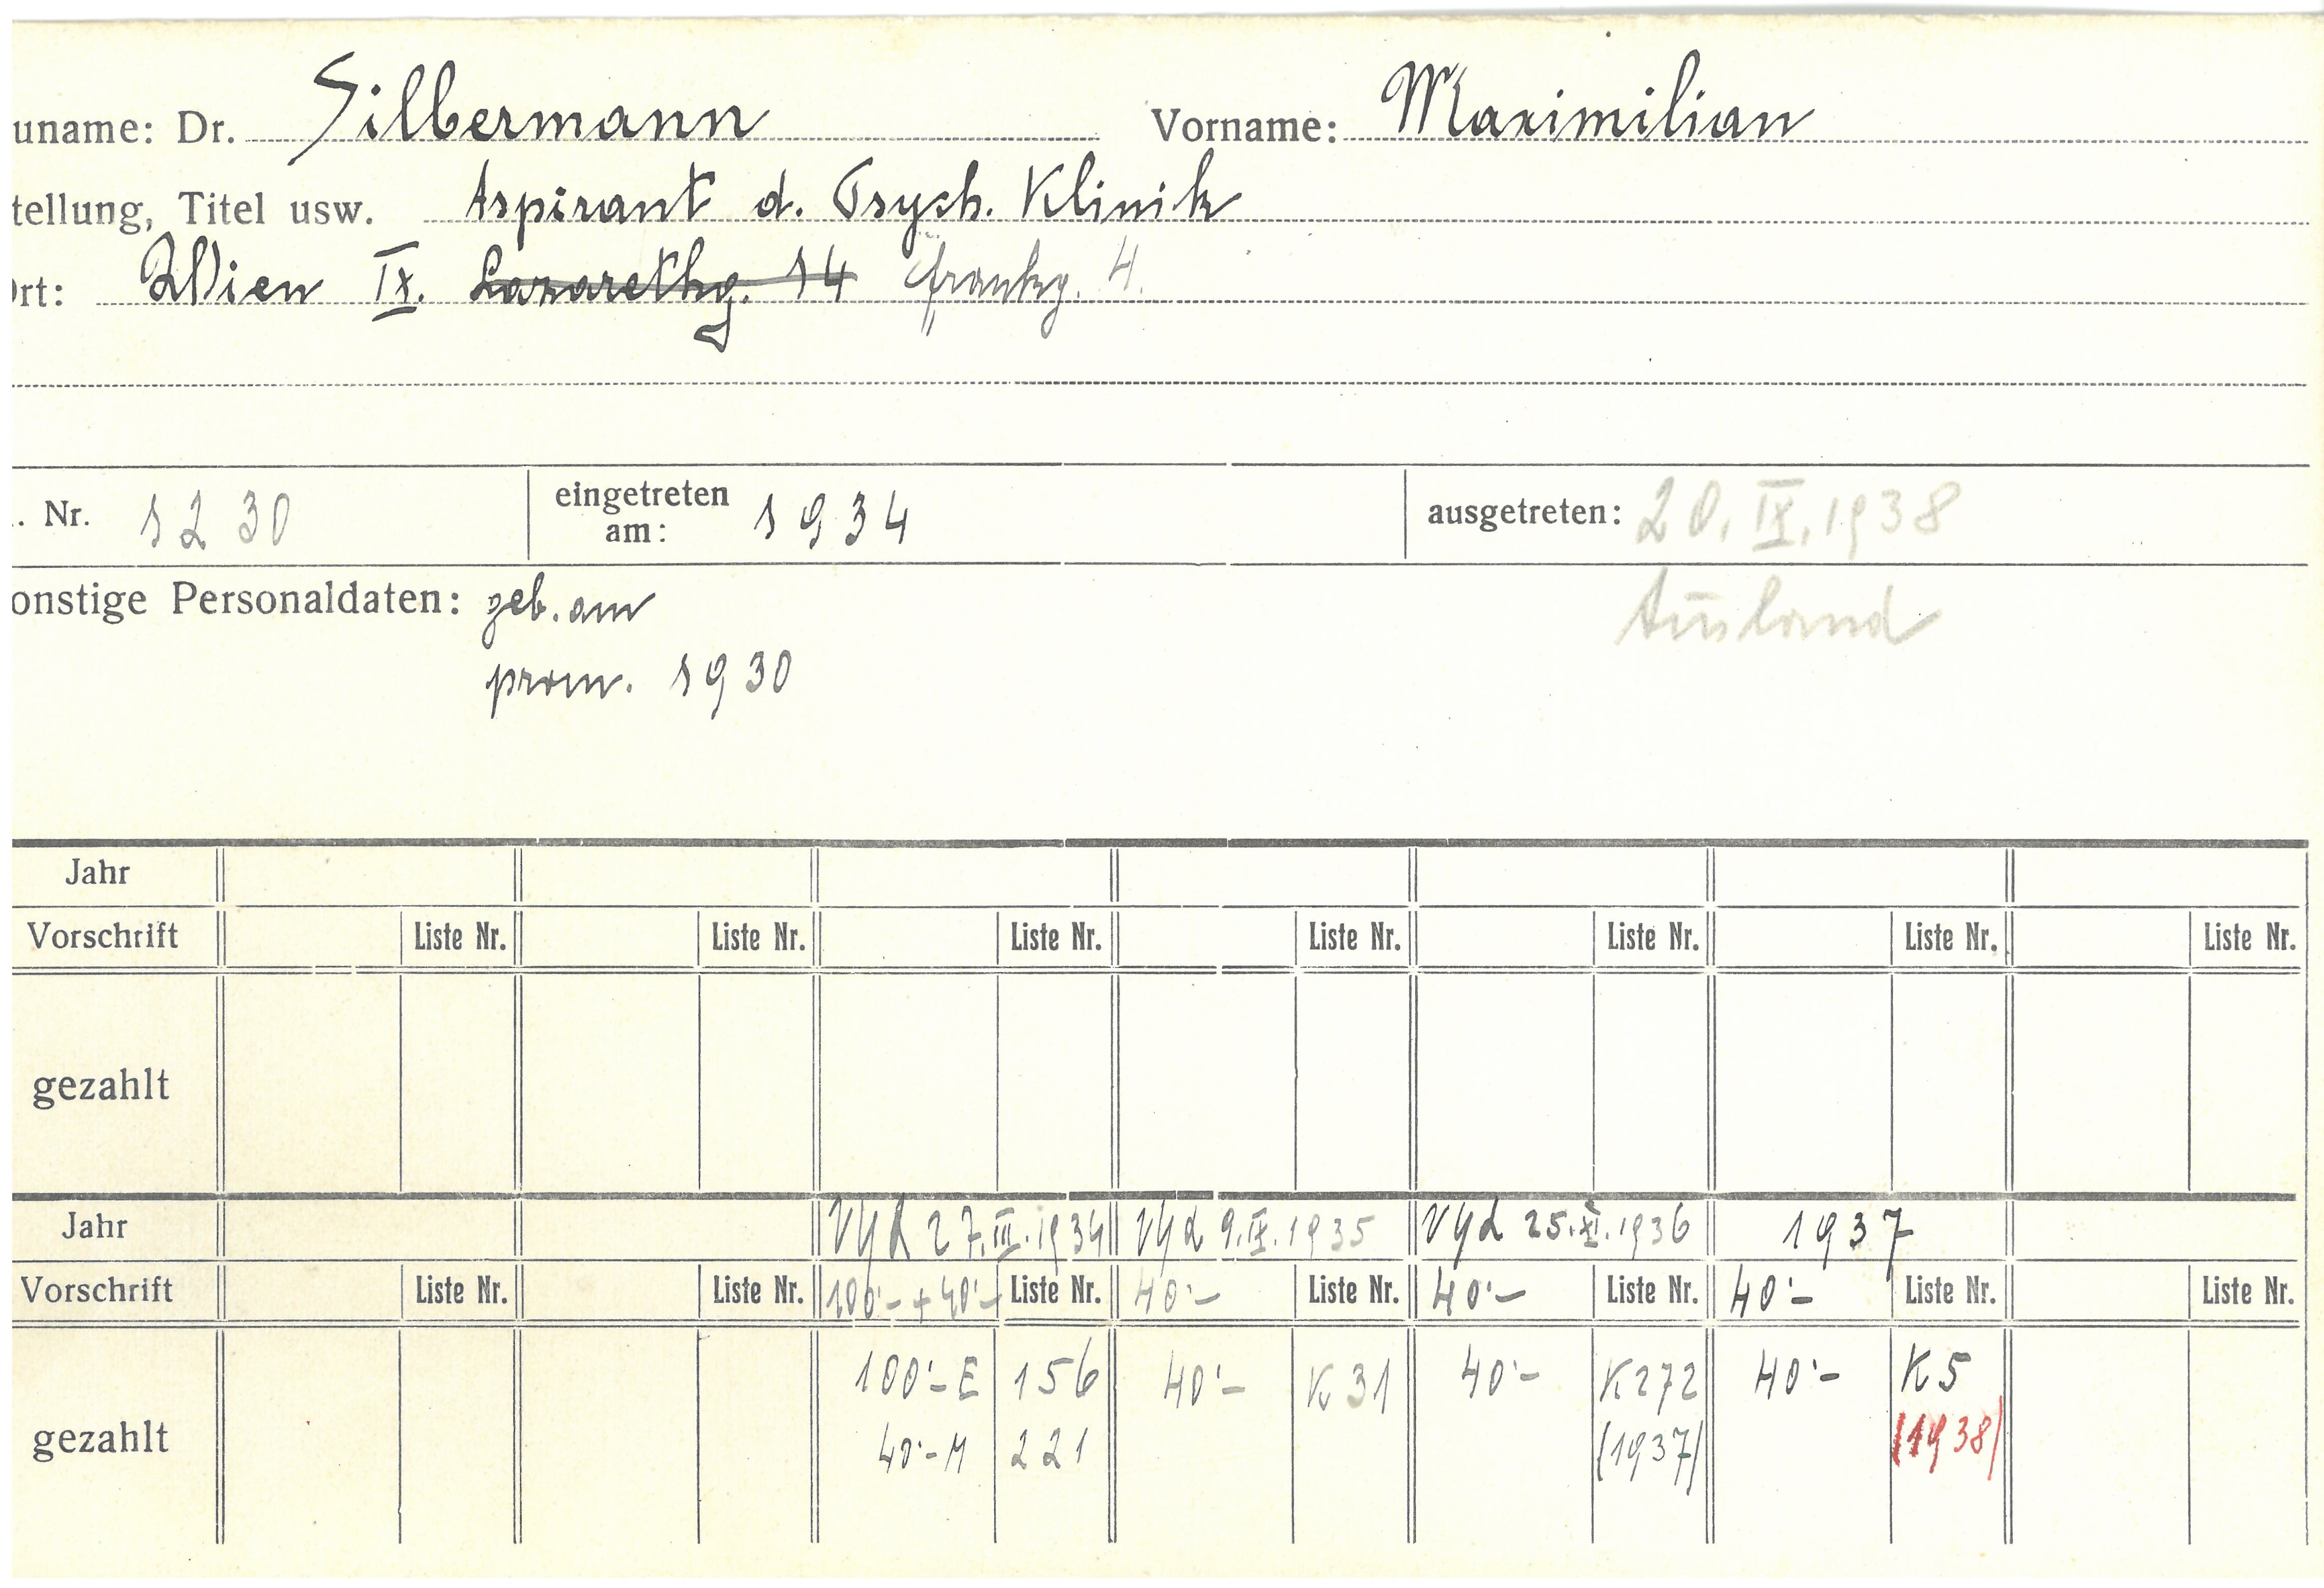 uname: Dr. Silbermann Vorname: Maximilian
tellung, Titel usw. Aspirant d. Psych. Klinik
Ort: Wien IX. Lazarethg. 14 frankg. 4.
. Nr. 1230 eingetreten am: 1934 ausgetreten: 20. IX. 1938
onstige Personaldaten: geb. am Ausland
prom. 1930
Jahr
Vorschrift Liste Nr. Liste Nr. Liste Nr. Liste Nr. Liste Nr. Liste Nr. Liste Nr.
gezahlt
Jahr 27. III. 1934 9. IX. 1935 25. XI. 1936 1937
Vorschrift Liste Nr. Liste Nr. 100·- + 40·- Liste Nr. 40·- Liste Nr. 40·- Liste Nr. 40·- Liste Nr. Liste Nr.
100·- E 156 40·- K 31 40·- K 272 40·- K 5
gezahlt 40·- M 221 (1937) (1938)